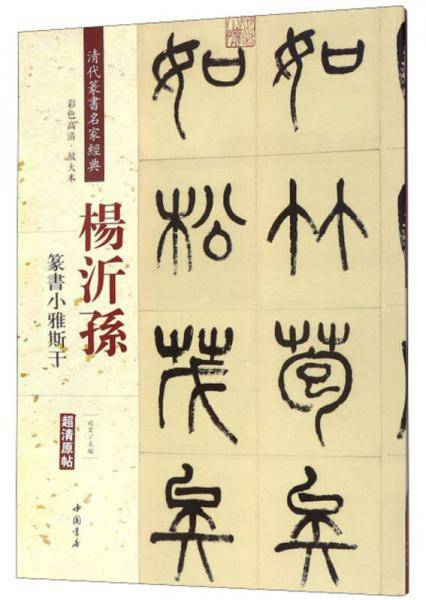 清代篆書名家經典
彩色高清·放大本
楊沂孫
篆書小雅斯干
超清原帖
主編
中国书店
如竹苞矣
如松茂矣